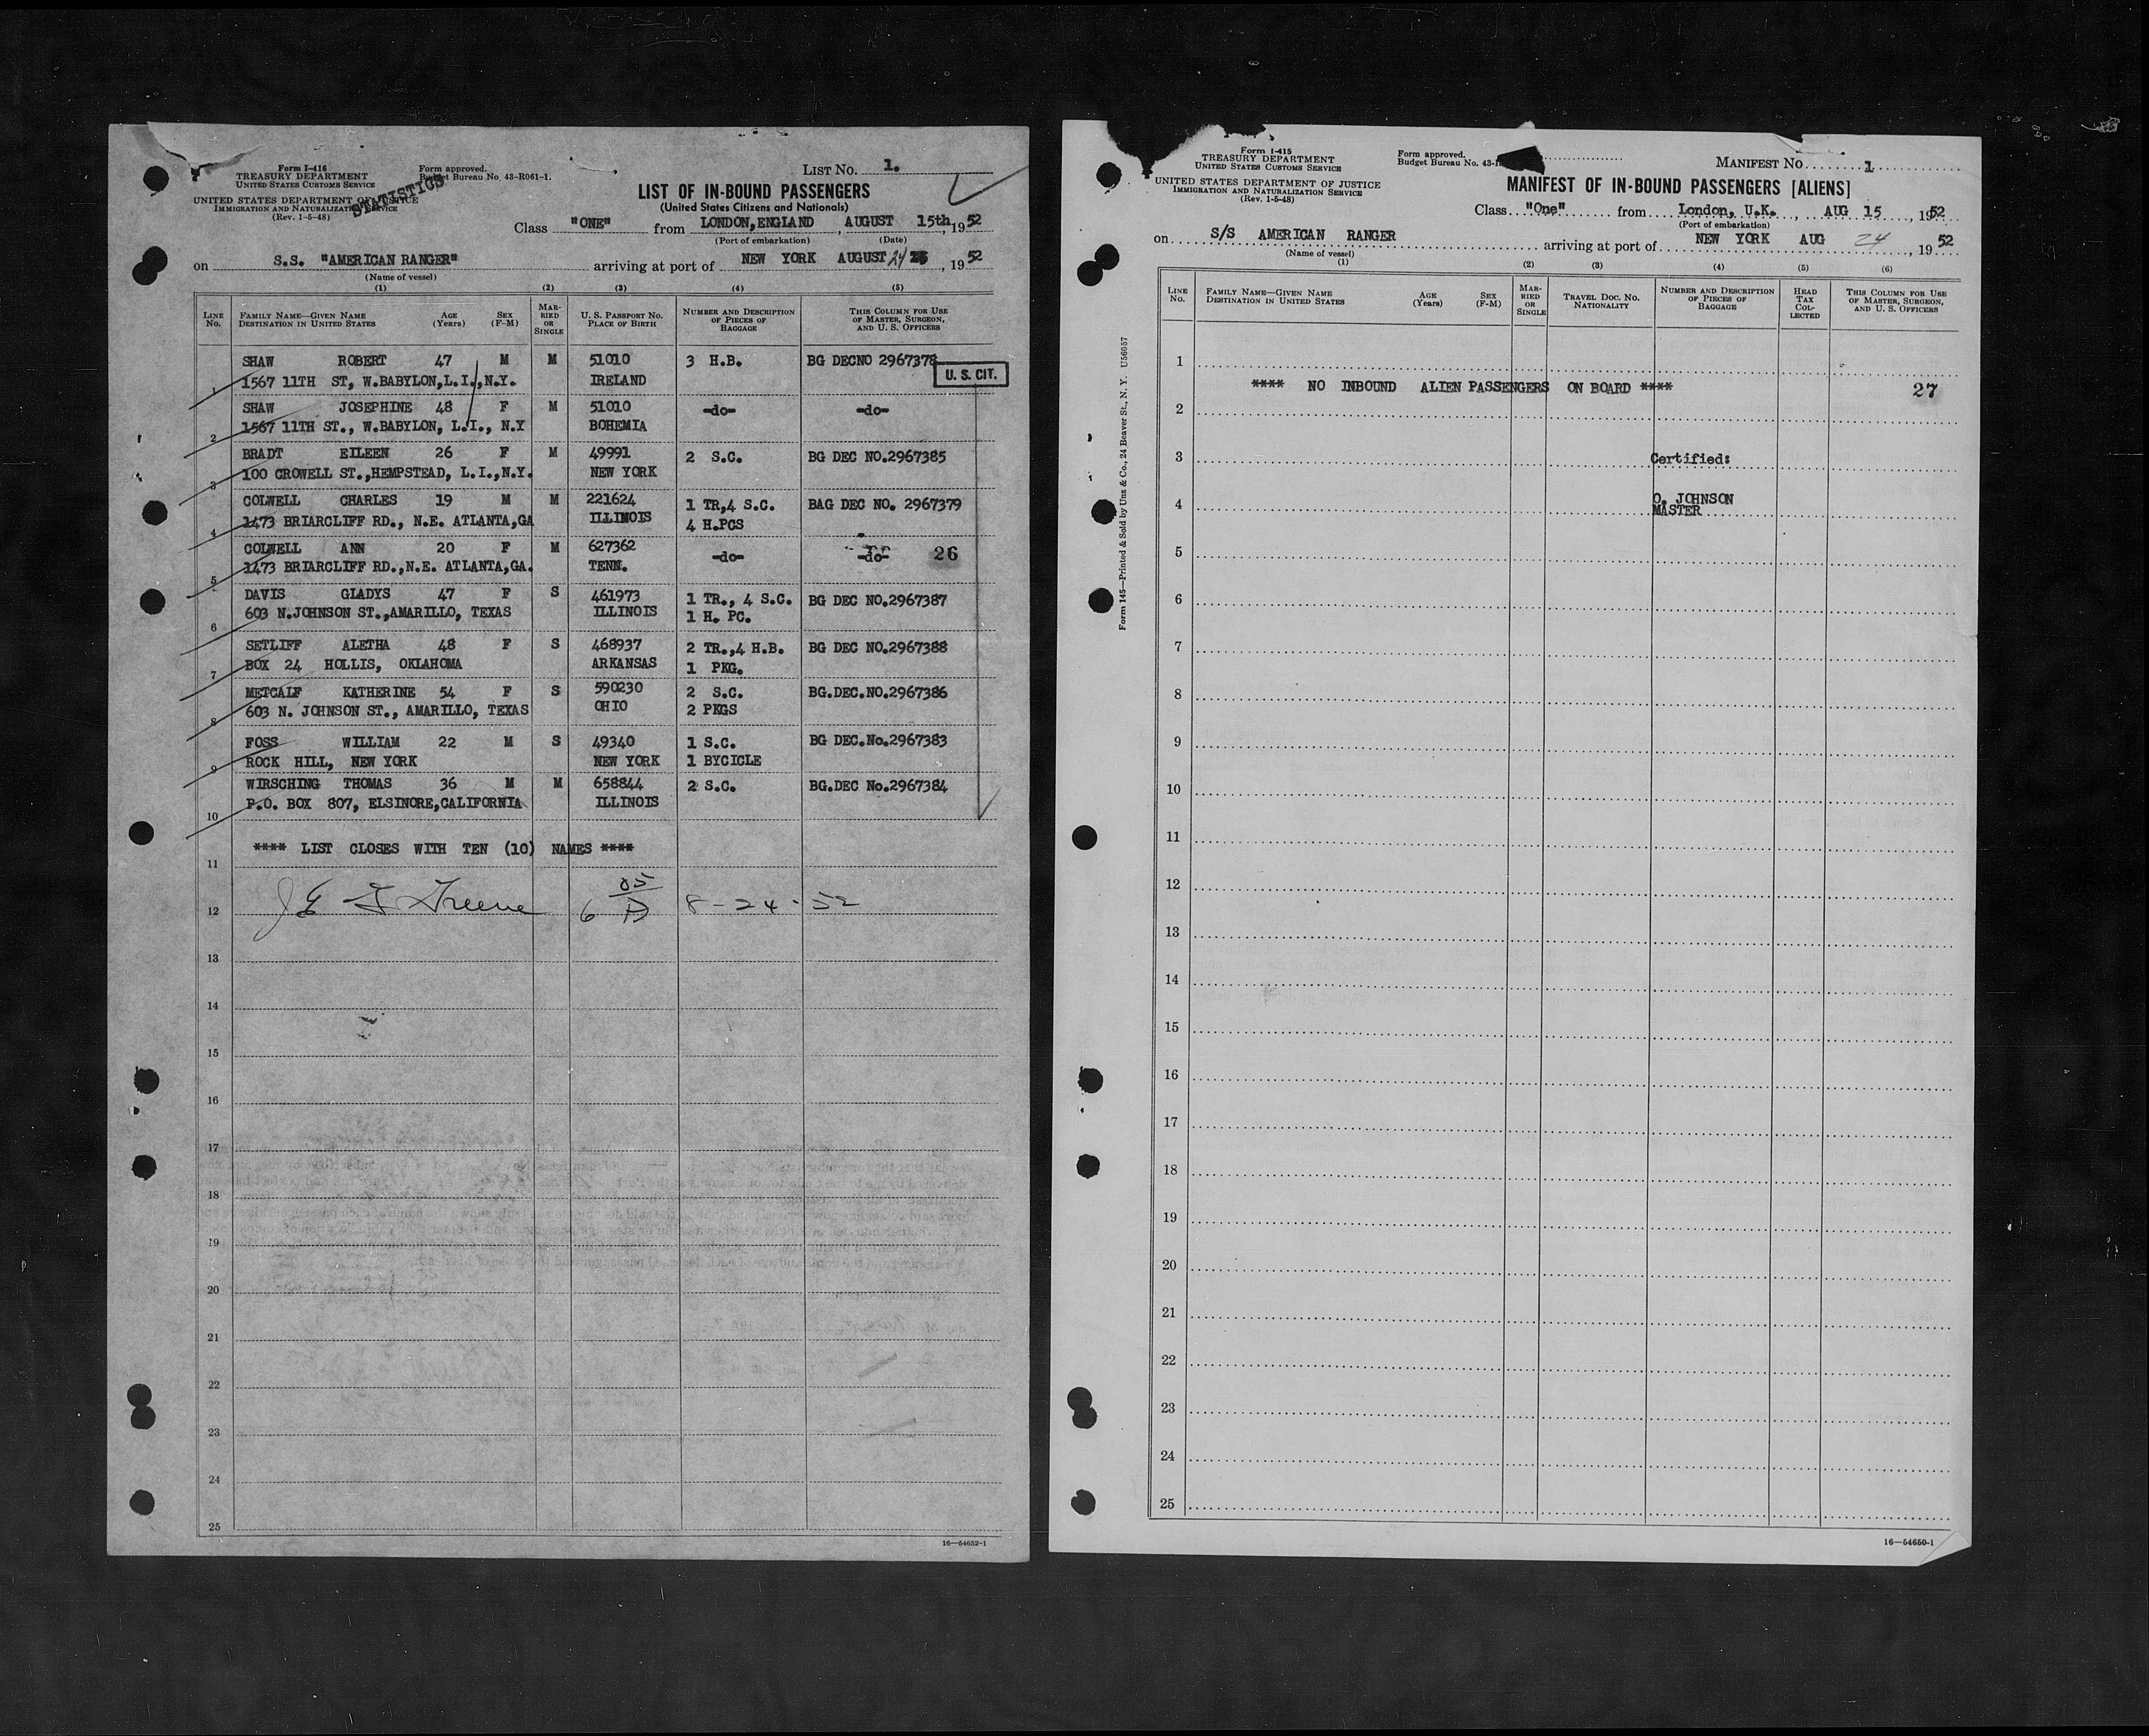 Form I-416
TREASURY DEPARTMENT
UNITED STATES CUSTOMS SERVICE
UNITED STATES DEPARTMENT OF JUSTICE
IMMIGRATION AND NATURALIZATION SERVICE
(Rev. 1-5-48)
STATISTICS
Form approved.
Budget Bureau No. 43-R061-1.
LIST NO. 1.
LIST OF IN-BOUND PASSENGERS
(United States Citizens and Nationals)
Class "ONE" from LONDON,ENGLAND, AUGUST 15th, 1952
(Port of embarkation) (Date)
on S.S. "AMERICAN RANGER" arriving at port of NEW YORK AUGUST 24, 1952
(Name of vessel)
(1) (2) (3) (4) (5)
LINE No. FAMILY NAME—GIVEN NAME DESTINATION IN UNITED STATES AGE (Years) SEX (F-M) MARRIED OR SINGLE U. S. PASSPORT NO. PLACE OF BIRTH NUMBER AND DESCRIPTION OF PIECES OF BAGGAGE THIS COLUMN FOR USE OF MASTER, SURGEON, AND U. S. OFFICERS
SHAW ROBERT 47 M M 51010 3 H.B. BG DECNO 2967378
U. S. CIT.
1 1567 11TH ST, W.BABYLON,L.I.,N.Y. IRELAND
SHAW JOSEPHINE 48 F M 51010 -do- -do-
2 1567 11TH ST., W.BABYLON, L.I., N.Y BOHEMIA
BRADT EILEEN 26 F M 49991 2 S.C. BG DEC NO.2967385
3 100 CROWELL ST.,HEMPSTEAD, L.I.,N.Y. NEW YORK
COLWELL CHARLES 19 M M 221624 1 TR,4 S.C. BAG DEC NO. 2967379
4 1473 BRIARCLIFF RD., N.E. ATLANTA,GA ILLINOIS 4 H.PCS
COLWELL ANN 20 F M 627362 -do- -do- 26
5 1473 BRIARCLIFF RD.,N.E. ATLANTA,GA. TENN.
DAVIS GLADYS 47 F S 461973 1 TR., 4 S.C. BG DEC NO.2967387
6 603 N.JOHNSON ST.,AMARILLO, TEXAS ILLINOIS 1 H. PC.
SETLIFF ALETHA 48 F S 468937 2 TR.,4 H.B. BG DEC NO.2967388
7 BOX 24 HOLLIS, OKLAHOMA ARKANSAS 1 PKG.
METCALF KATHERINE 54 F S 590230 2 S.C. BG.DEC.NO.2967386
8 603 N. JOHNSON ST., AMARILLO, TEXAS OHIO 2 PKGS
FOSS WILLIAM 22 M S 49340 1 S.C. BG DEC.No.2967383
9 ROCK HILL, NEW YORK NEW YORK 1 BYCICLE
WIRSCHING THOMAS 36 M M 658844 2 S.C. BG.DEC No.2967384
10 P.O. BOX 807, ELSINORE,CALIFORNIA ILLINOIS
**** LIST CLOSES WITH TEN (10) NAMES ****
11
12 Greene 6 05 8-24-52
13
14
15
16
17
18
19
20
21
22
23
24
25
16—54652-1
Form I-415
TREASURY DEPARTMENT
UNITED STATES CUSTOMS SERVICE
UNITED STATES DEPARTMENT OF JUSTICE
IMMIGRATION AND NATURALIZATION SERVICE
(Rev. 1-5-48)
Form approved.
Budget Bureau No. 43-
MANIFEST NO. 1
MANIFEST OF IN-BOUND PASSENGERS [ALIENS]
Class "One" from London, U.K., AUG 15, 1952
(Port of embarkation)
on S/S AMERICAN RANGER arriving at port of NEW YORK AUG 24, 1952
(Name of vessel)
(1) (2) (3) (4) (5) (6)
LINE No. FAMILY NAME—GIVEN NAME DESTINATION IN UNITED STATES AGE (Years) SEX (F-M) MARRIED OR SINGLE TRAVEL DOC. NO. NATIONALITY NUMBER AND DESCRIPTION OF PIECES OF BAGGAGE HEAD TAX COLLECTED THIS COLUMN FOR USE OF MASTER, SURGEON, AND U. S. OFFICERS
Form 145—Printed & Sold by Unz & Co., 24 Beaver St., N. Y. U56057
1
**** NO INBOUND ALIEN PASSENGERS ON BOARD **** 27
2
3 Certified:
4 O. JOHNSON
MASTER
5
6
7
8
9
10
11
12
13
14
15
16
17
18
19
20
21
22
23
24
25
16—54650-1